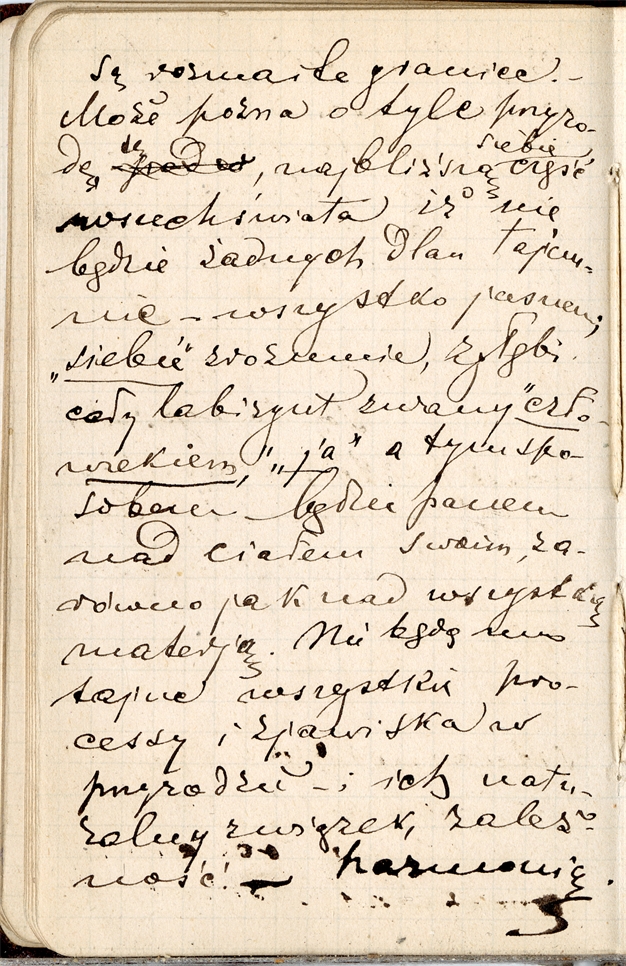 Są rozmaite granice. –
Może pozna o tyle przyro-
dę, tę, najbliższą siebie część
wszechświata iż nie
będzie żadnych dlań tajem-
nic – wszystko jasnem,
„siebie" zrozumie, zgłębi
cały labirynt zwany "czło-
wiekiem", „ja" a tym spo-
sobem będzie panem
nad ciałem swoim, za-
równo jak nad wszystką
materją. Nie będą mu
tajne wszystkie pro-
cessy i zjawiska w
przyrodzie – i ich natu-
ralny związek, zależ-
ność! – harmonię.